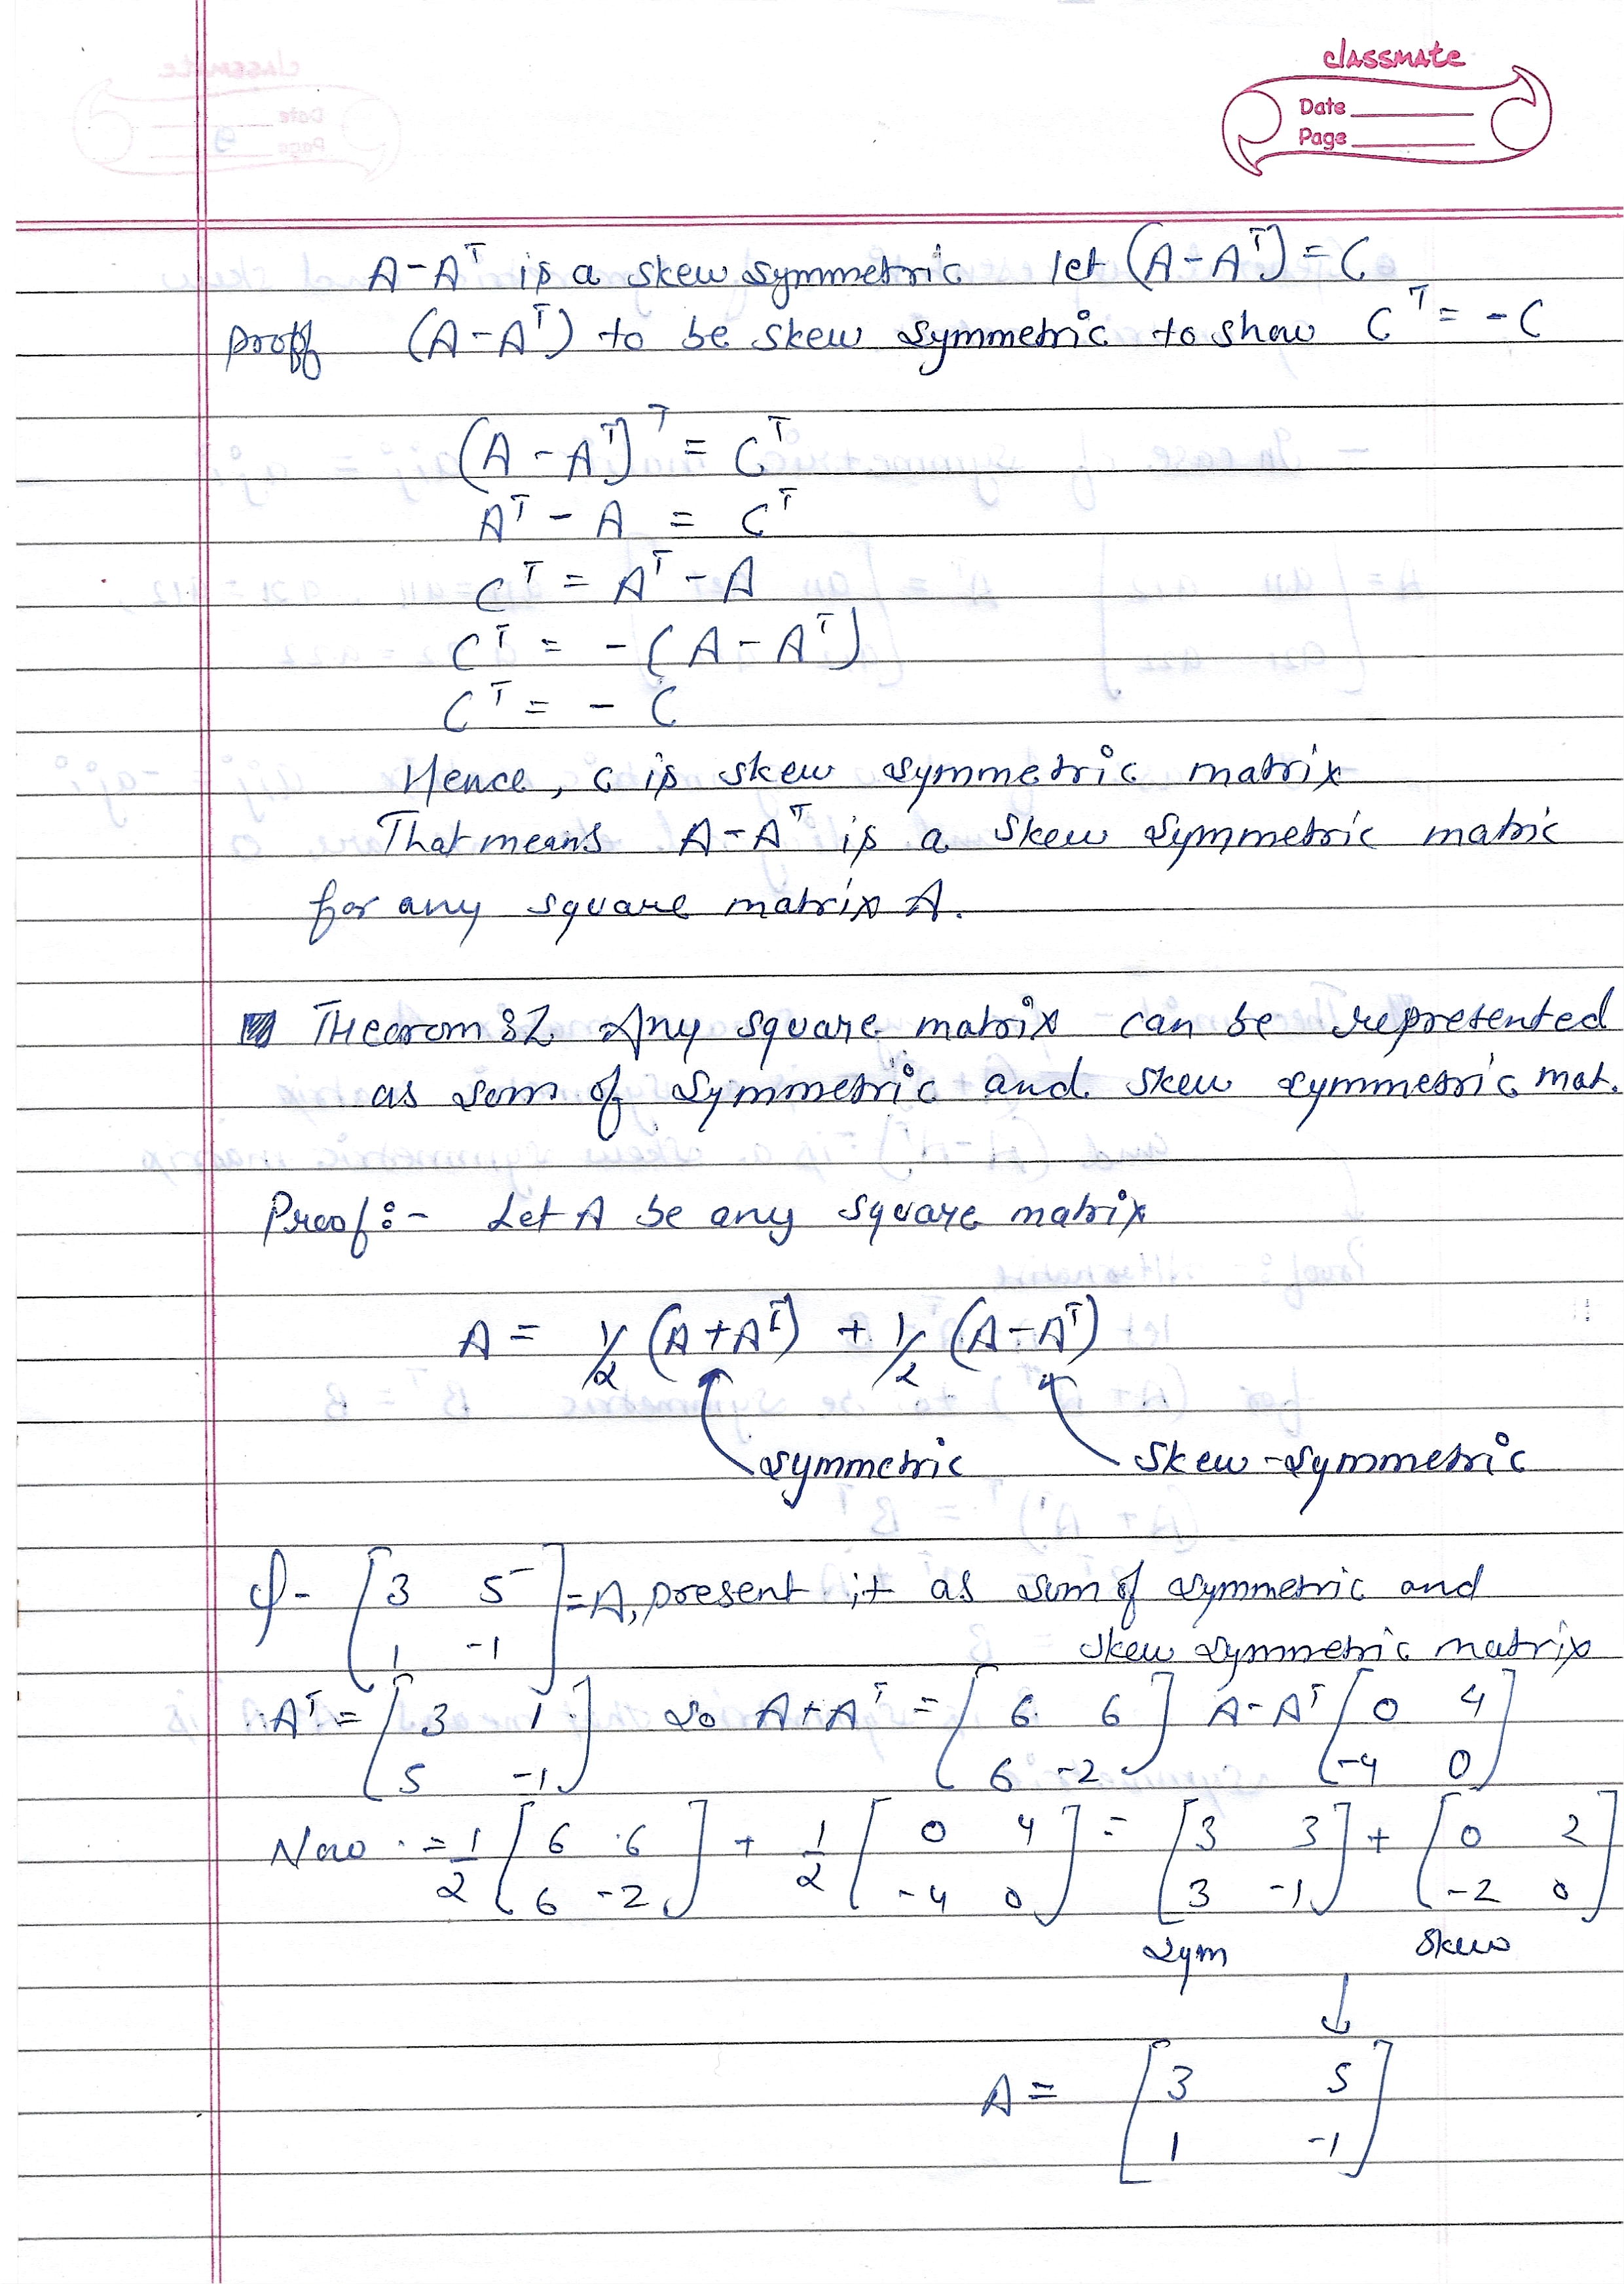 classmate
Date
Page
A-Aᵀ is a skew symmetric let (A-Aᵀ) = C
proff (A-Aᵀ) to be skew symmetric to show Cᵀ = -C
(A-Aᵀ)ᵀ = Cᵀ
Aᵀ - A = Cᵀ
Cᵀ = Aᵀ - A
Cᵀ = -(A-Aᵀ)
Cᵀ = - C
Hence, C is skew symmetric matrix
That means A-Aᵀ is a skew symmetric matric
for any square matrix A.
THeorom 2 Any square matrix can be represented
as sum of symmetric and skew symmetric mat.
Proof:- Let A be any square matrix
A = 1/2 (A+Aᵀ) + 1/2 (A-Aᵀ)
symmetric skew-symmetric
[3 5; 1 -1] = A, present it as sum of symmetric and
skew symmetric matrix
Aᵀ = [3 1; 5 -1] so A+Aᵀ = [6 6; 6 -2] A-Aᵀ [0 4; -4 0]
Now = 1/2 [6 6; 6 -2] + 1/2 [0 4; -4 0] = [3 3; 3 -1] + [0 2; -2 0]
sym skew
↓
A = [3 5; 1 -1]